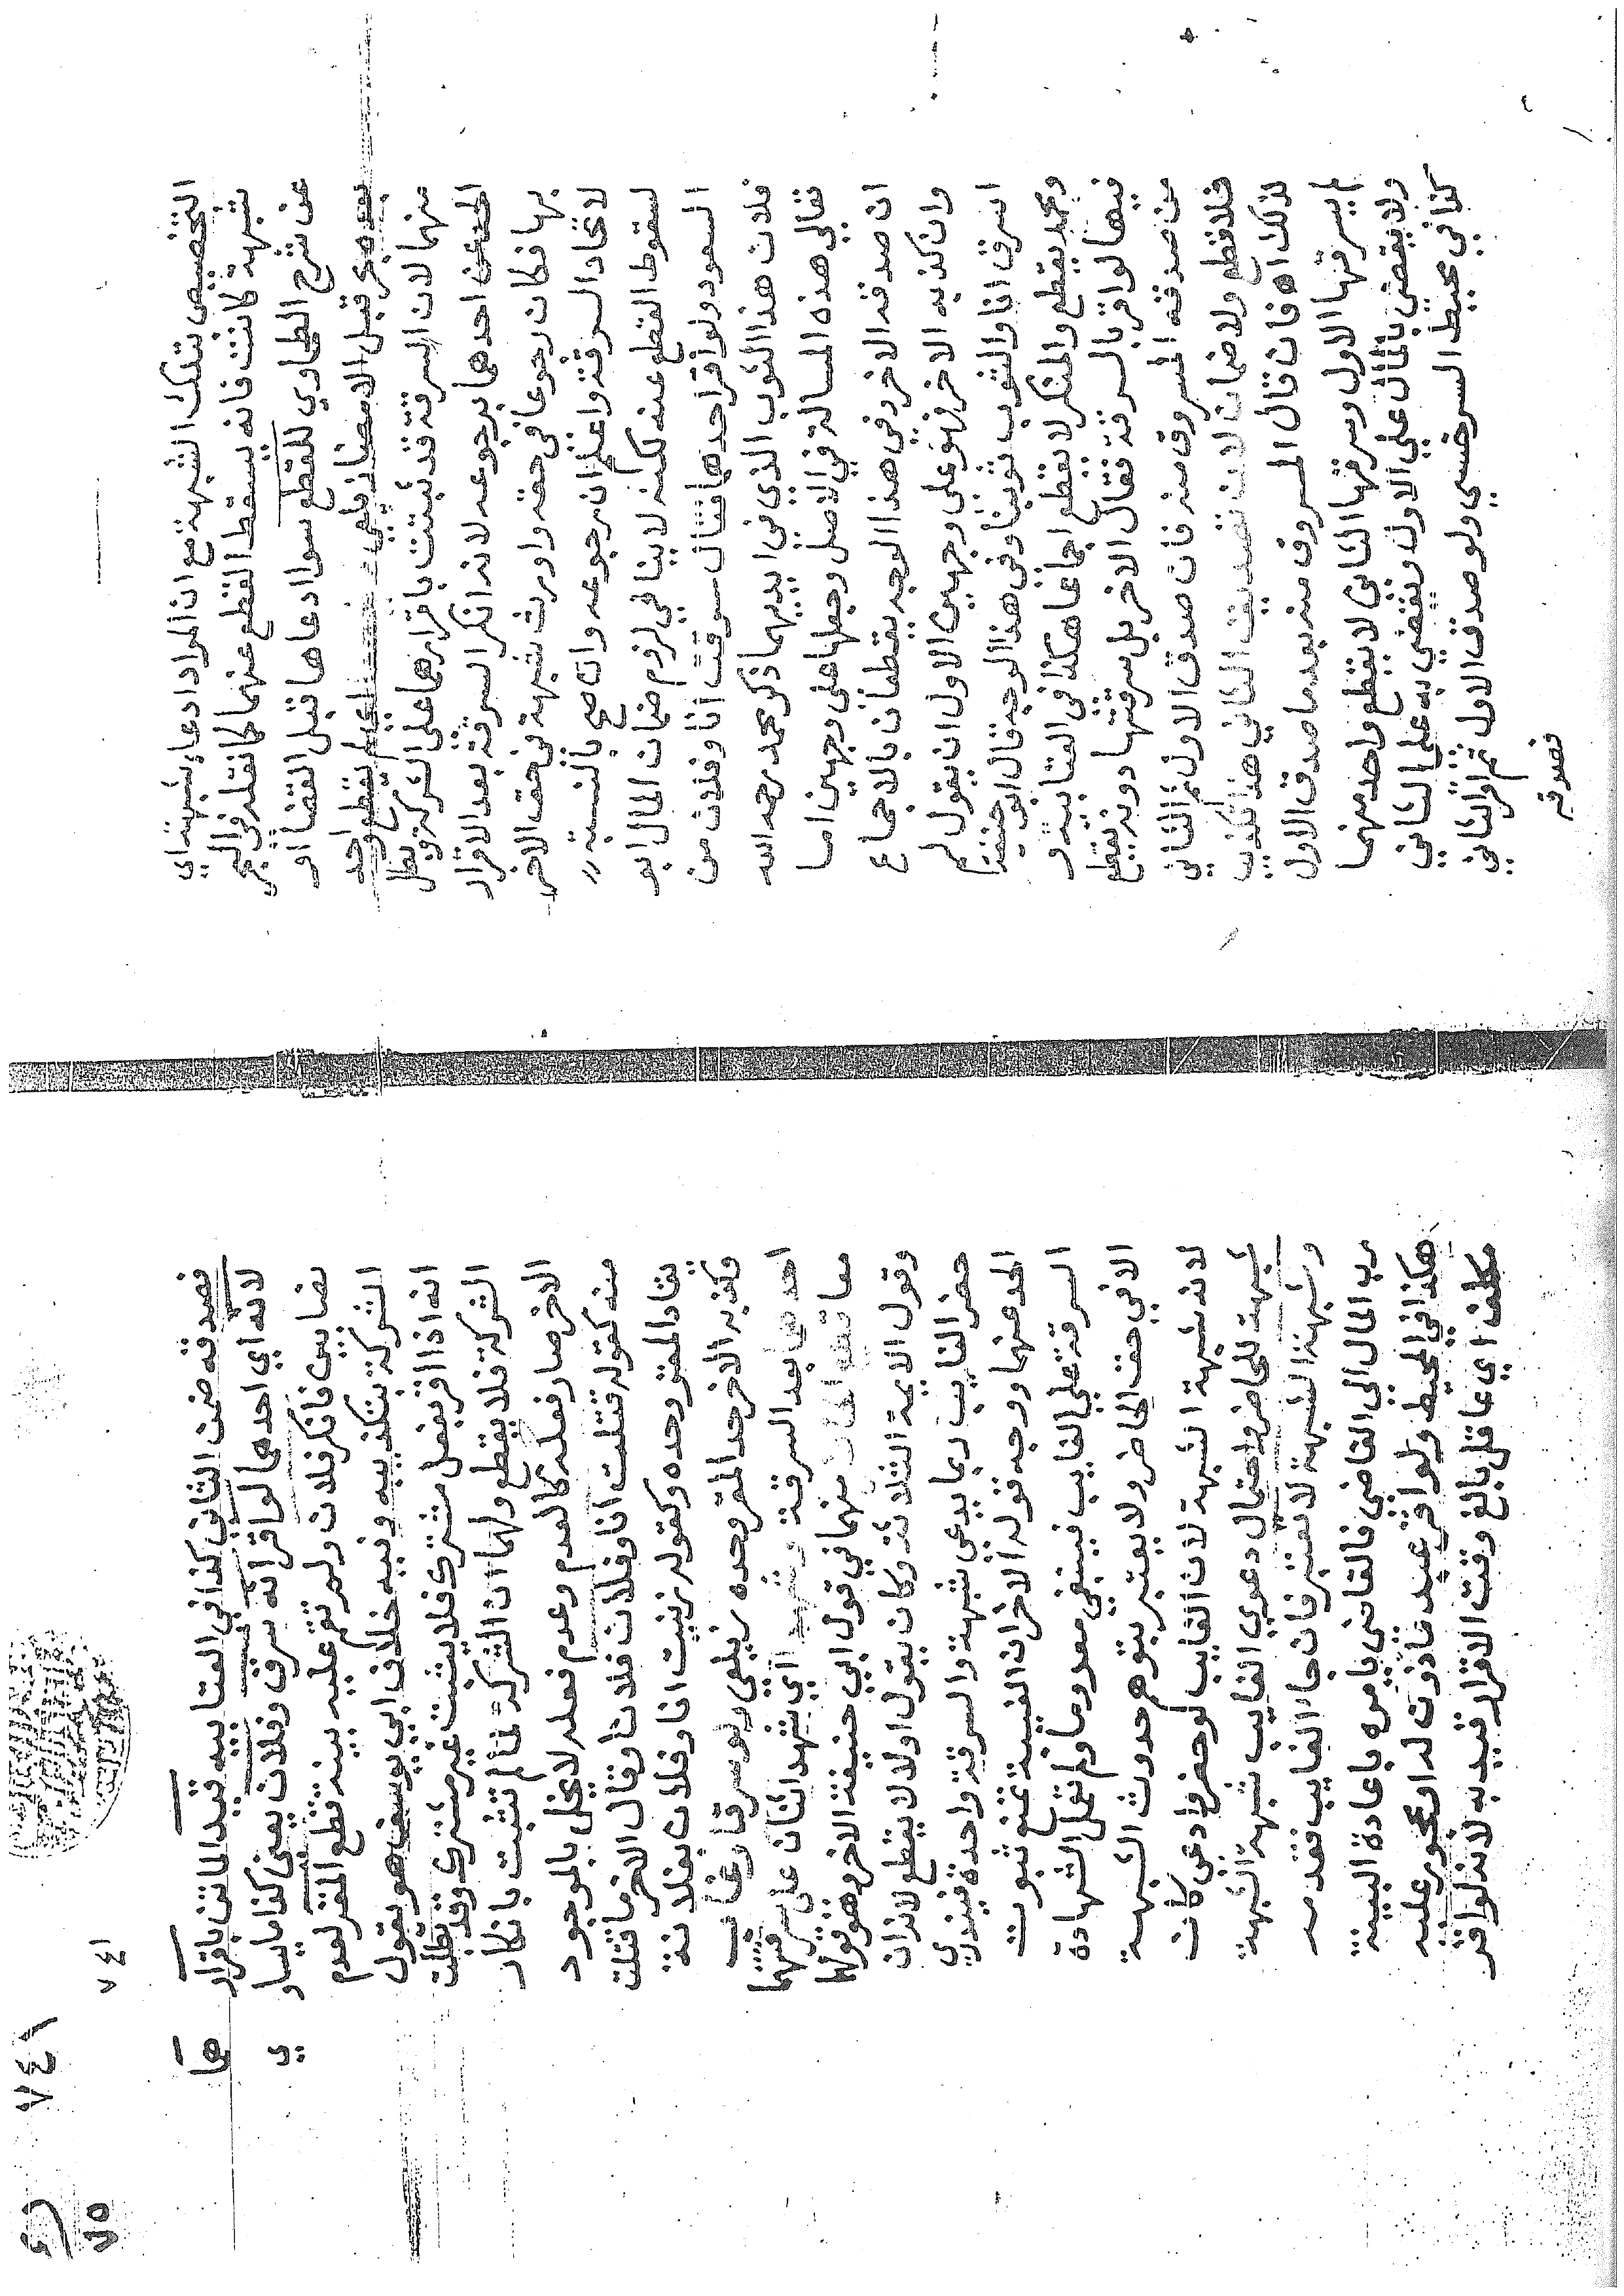 التخصيص بتلك الشبهة مع ان المراد ادعاه بشبهة اي
شبهة كانت فانه يسقط القطع عنهما كما نقله في البحر
عن شرح الطحاوي للقطع سوا ادعاها قبل القضا او
بعده بحر قبل الامضا زيلعي لم يقطع واحد
منهما لان السرقة قد ثبتت باقرارهما على الشركة وبطل
الحد عن احدهما برجوعه لانه انكر السرقة بعد الاقرار
بها فكان رجوعا في حقه واورث شبهة في حق الاخر
لاتحاد السرقة واعلم ان رجوعه وان صح بالنسبة
لسقوط القطع عنه لكنه لا ينافي لزوم ضمان المال ابو
السعود ولو اقر احدهما فقال سرقت انا وفلان من
فلان هذا الثوب الذي في ايديهما ذكر محمد رحمه الله
تعالى هذه المسالة في الاصل وجعلها على وجهين اما
ان صدقه الاخر وفي هذا الوجه يقطعان بالاجماع
وان كذبه الاخر فهو على وجهين الاول ان يقول لم
اسرق انا والثوب ثوبنا وفي هذا الوجه قال ابو حنيفة
ومحمد يقطع والمنكر لا يقطع اجماعا هكذا في العتابية و
فيها لو اقر بالسرقة فقال الاخر بل سرقتها دونه يقطع
من صدقه المسروق منه فان صدق الاول ثم الثاني
فلا قطع ولا ضمان لان تصديق الثاني هذا تكذيب
لذلك اه فان قال المسروق منه بعد ما صدق الاول
لم يسرقها الاول وسرقها الثاني لا يقطع واحد منهما
ولا يقضى بالمال على الاول ويقضي به على الثاني
كذا في محيط السرخسي ولو صدق الاول ثم اقر الثاني
فصدقه
٧٤١
٧٤١
٧٥
فصدقه ضمن الثاني كذا في العتابيه قيد الماتن باقرار هما
لانه اي احدهما لو اقر انه سرق وفلان يعني كذا يساو ي
نصابين فانكر فلان ولم تقم عليه بينة قطع المقر لعدم
الشركة بتكذيبه وفيه خلاف ابي يوسف هو يقول
انه اذا اقر بفعل مشترك فلا يثبت غير مشترك وقد بطلت
الشركة فلا يقطع ولهما ان الشركة لما لم تثبت بانكار
الاخر صار فعله كالعدم وعدم فعله لا يخل بالموجود
منه كقوله قتلت انا وفلان فلانا وقال الاخر ما قتلت
يقاد المقر وحده وكقوله زنيت انا وفلان بفلانة
وكذبه الاخر حد المقر وحده زيلعي ولو سرقا وغاب
احدهما بعد السرقة وشهد اي شهد اثنان على سرقتهما
معا قطع الحاضر منهما في قول ابي حنيفة الاخر وهو قولهما
وقول الايمة الثلاثة وكان يقول اولا لا يقطع لانه ان
حضر الغايب ربما يدعي شبهة والسرقة واحدة فيندري
الحد عنهما ووجه قوله الاخر ان الغيبة تمنع ثبوت
السرقة على الغايب فيبقى معدوما ولم تعمل الشهادة
الا في حق الحاضر ولا يعتبر بتوهم حدوث الشبهة
لانه شبهة الشبهة لان الغايب لو حضر وادعى كان
شبهة للحاضر واحتمال دعوي الغايب شبهة الشبهة
وشبهة الشبهة لا تعتبر فان جاء الغايب فقدمه
رب المال الى القاضي فالقاضي يامره باعادة البينة
هكذا في المحيط ولو اقر عبد ماذون له او محجور عليه
مكلف اي عاقل بالغ وقت الاقرار قيد به لانه لو اقر